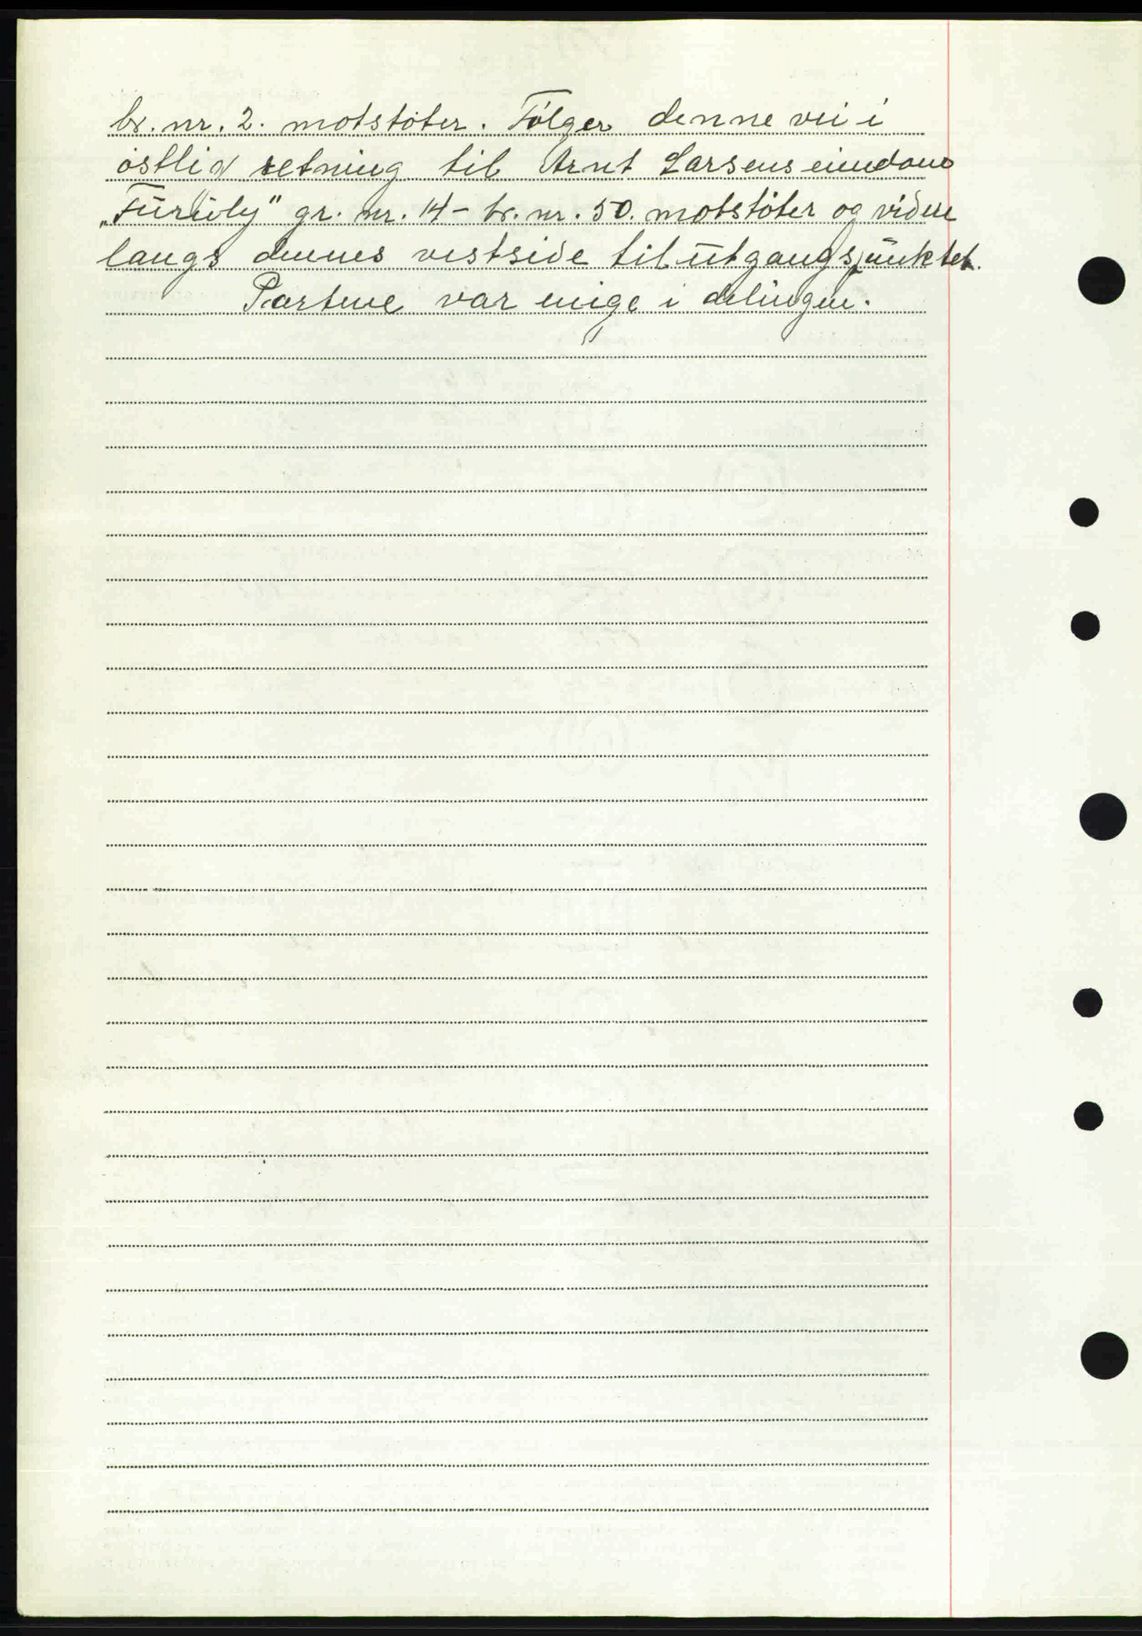 br. nr. 2. motstöter. Følger denne vei i
östlig retning til Arnt Larsens eiendom
„Furuly" gr. nr. 14 - br. nr. 50. motstöter og videre
langs dennes vestside til utgangspunktet.
Partene var enige i delingen.